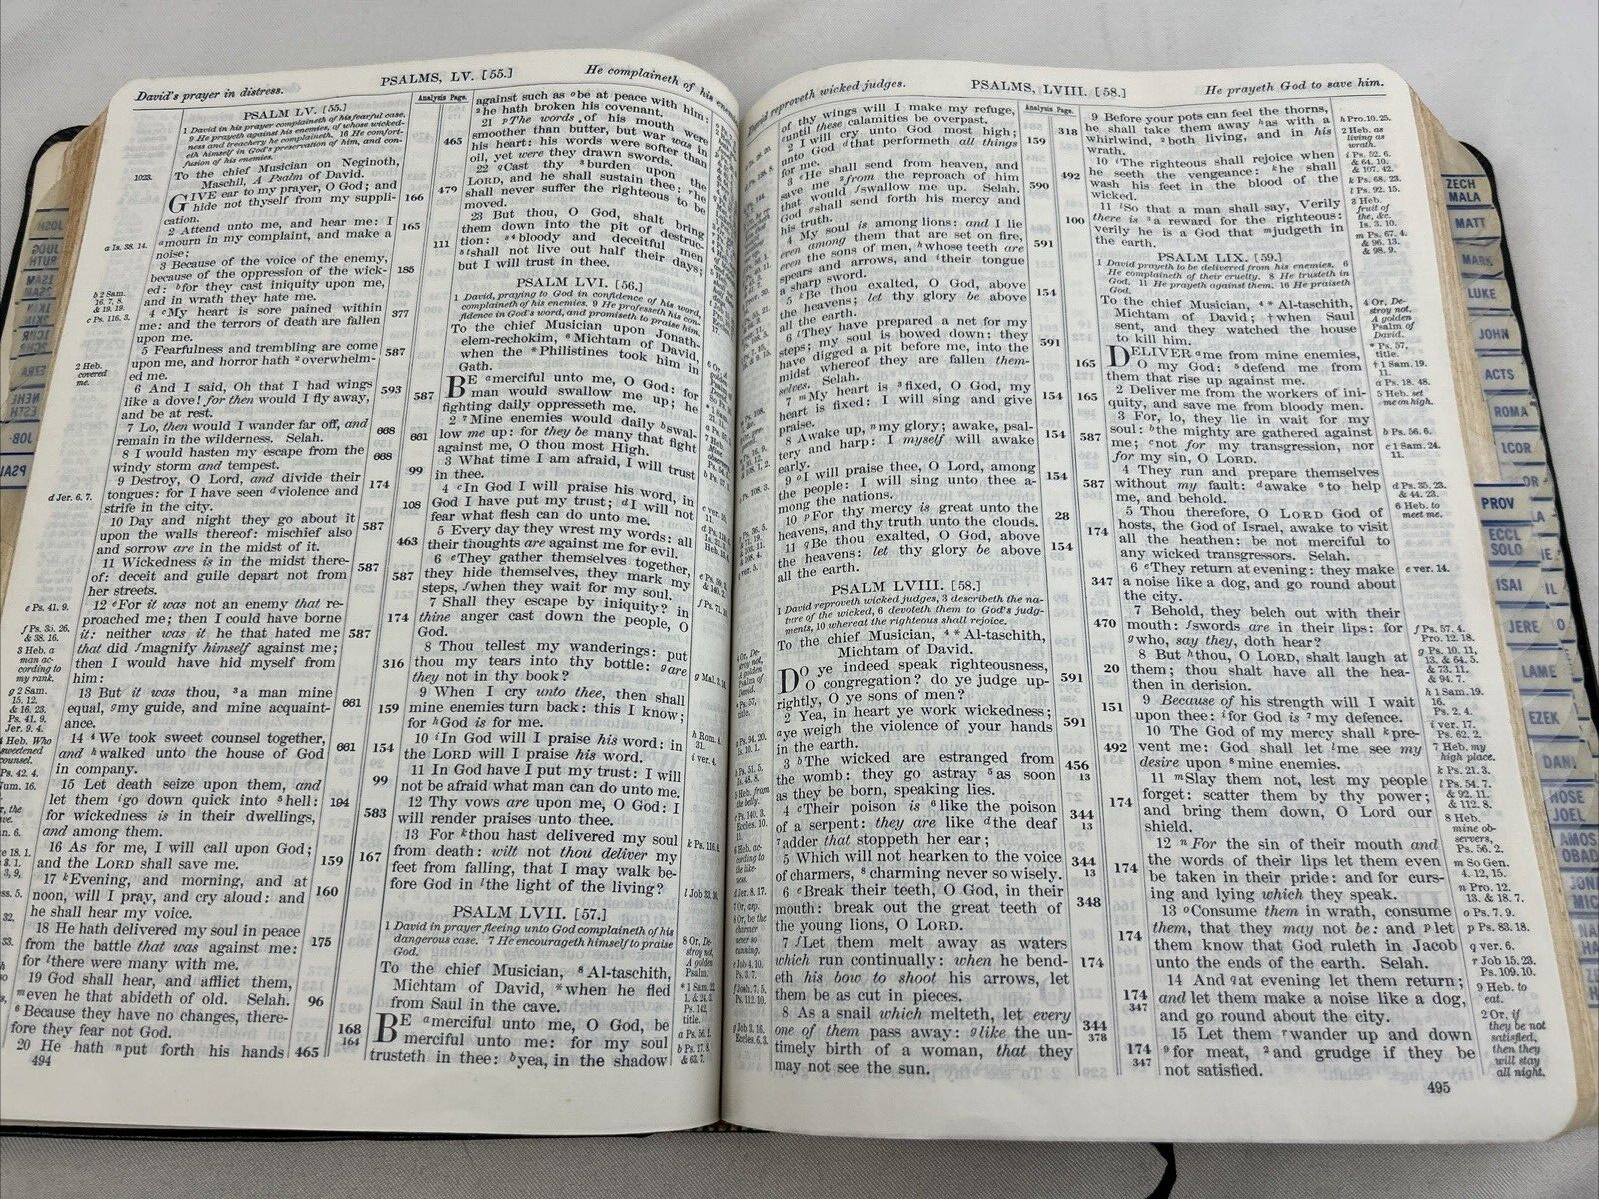 David's prayer in distress.
PSALMS, LV. [55.]
He complaineth of his
PSALM LV. [55.]
1 David in his prayer complaineth of his fearful case.
9 He prayeth against his enemies, of whose wicked-
ness and treachery he complaineth. 16 He comfort-
eth himself in God's preservation of him, and con-
fusion of his enemies.
To the chief Musician on Neginoth,
Maschil, A Psalm of David.
GIVE ear to my prayer, O God; and
hide not thyself from my suppli-
cation.
2 Attend unto me, and hear me: I
a mourn in my complaint, and make a
noise;
3 Because of the voice of the enemy,
because of the oppression of the wick-
ed: b for they cast iniquity upon me,
and in wrath they hate me.
4 c My heart is sore pained within
me: and the terrors of death are fallen
upon me.
5 Fearfulness and trembling are come
upon me, and horror hath 2 overwhelm-
ed me.
6 And I said, Oh that I had wings
like a dove! for then would I fly away,
and be at rest.
7 Lo, then would I wander far off, and
remain in the wilderness. Selah.
8 I would hasten my escape from the
windy storm and tempest.
9 Destroy, O Lord, and divide their
tongues: for I have seen d violence and
strife in the city.
10 Day and night they go about it
upon the walls thereof: mischief also
and sorrow are in the midst of it.
11 Wickedness is in the midst there-
of: deceit and guile depart not from
her streets.
12 e For it was not an enemy that re-
proached me; then I could have borne
it: neither was it he that hated me
that did f magnify himself against me;
then I would have hid myself from
him:
13 But it was thou, 3 a man mine
equal, g my guide, and mine acquaint-
ance.
14 4 We took sweet counsel together,
and h walked unto the house of God
in company.
15 Let death seize upon them, and
let them i go down quick into 5 hell:
for wickedness is in their dwellings,
and among them.
16 As for me, I will call upon God;
and the LORD shall save me.
17 k Evening, and morning, and at
noon, will I pray, and cry aloud: and
he shall hear my voice.
18 He hath delivered my soul in peace
from the battle that was against me:
for l there were many with me.
19 God shall hear, and afflict them,
m even he that abideth of old. Selah.
6 Because they have no changes, there-
fore they fear not God.
20 He hath n put forth his hands
494
1023.
a Is. 38. 14.
b 2 Sam.
16. 7, 8.
& 19. 19.
c Ps. 116. 3.
2 Heb.
covered
me.
d Jer. 6. 7.
e Ps. 41. 9.
f Ps. 35. 26.
& 38. 16.
3 Heb. a
man ac-
cording to
my rank.
g 2 Sam.
15. 12.
& 16. 23.
Ps. 41. 9.
Jer. 9. 4.
4 Heb. Who
sweetened
counsel.
Ps. 42. 4.
Analysis Page.
166
165
185
377
587
593
668
668
174
587
587
587
661
661
194
159
160
175
96
465
465
479
111
587
661
99
108
463
587
174
316
159
154
99
583
167
168
164
against such as o be at peace with him:
2 he hath broken his covenant.
21 p The words of his mouth were
smoother than butter, but war was in
his heart: his words were softer than
oil, yet were they drawn swords.
22 q Cast thy 3 burden upon the
LORD, and he shall sustain thee: r he
shall never suffer the righteous to be
moved.
23 But thou, O God, shalt bring
them down into the pit of destruc-
tion: s 4 bloody and deceitful men
5 t shall not live out half their days;
but I will trust in thee.
PSALM LVI. [56.]
1 David, praying to God in confidence of his word,
complaineth of his enemies. 9 He professeth his con-
fidence in God's word, and promiseth to praise him.
To the chief Musician upon Jonath-
elem-rechokim, 6 Michtam of David,
when the * Philistines took him in
Gath.
BE a merciful unto me, O God: for
man would swallow me up; he
fighting daily oppresseth me.
2 7 Mine enemies would daily b swal-
low me up: for they be many that fight
against me, O thou most High.
3 What time I am afraid, I will trust
in thee.
4 c In God I will praise his word, in
God I have put my trust; d I will not
fear what flesh can do unto me.
5 Every day they wrest my words: all
their thoughts are against me for evil.
6 e They gather themselves together,
they hide themselves, they mark my
steps, f when they wait for my soul.
7 Shall they escape by iniquity? in
thine anger cast down the people, O
God.
8 Thou tellest my wanderings: put
thou my tears into thy bottle: g are
they not in thy book?
9 When I cry unto thee, then shall
mine enemies turn back: this I know;
for h God is for me.
10 i In God will I praise his word: in
the LORD will I praise his word.
11 In God have I put my trust: I will
not be afraid what man can do unto me.
12 Thy vows are upon me, O God: I
will render praises unto thee.
13 For k thou hast delivered my soul
from death: wilt not thou deliver my
feet from falling, that I may walk be-
fore God in l the light of the living?
PSALM LVII. [57.]
1 David in prayer fleeing unto God complaineth of his
dangerous case. 7 He encourageth himself to praise
God.
To the chief Musician, 8 Al-taschith,
Michtam of David, * when he fled
from Saul in the cave.
BE a merciful unto me, O God, be
merciful unto me: for my soul
trusteth in thee: b yea, in the shadow
k Ps. 116. 8.
l Job 33. 30.
8 Or, De-
stroy not,
A golden
Psalm.
David reproveth wicked judges.
PSALMS, LVIII. [58.]
He prayeth God to save him.
of thy wings will I make my refuge,
c until these calamities be overpast.
2 I will cry unto God most high;
unto God d that performeth all things
for me.
3 e He shall send from heaven, and
save me 2 from the reproach of him
that would f swallow me up. Selah.
God g shall send forth his mercy and
his truth.
4 My soul is among lions: and I lie
even among them that are set on fire,
even the sons of men, h whose teeth are
spears and arrows, and i their tongue
a sharp sword.
5 k Be thou exalted, O God, above
the heavens; let thy glory be above
all the earth.
6 l They have prepared a net for my
steps; my soul is bowed down: they
have digged a pit before me, into the
midst whereof they are fallen them-
selves. Selah.
7 m My heart is 3 fixed, O God, my
heart is fixed: I will sing and give
praise.
8 Awake up, n my glory; awake, psal-
tery and harp: I myself will awake
early.
9 o I will praise thee, O Lord, among
the people: I will sing unto thee a-
mong the nations.
10 p For thy mercy is great unto the
heavens, and thy truth unto the clouds.
11 q Be thou exalted, O God, above
the heavens: let thy glory be above
all the earth.
PSALM LVIII. [58.]
1 David reproveth wicked judges, 3 describeth the na-
ture of the wicked, 6 devoteth them to God's judg-
ments, 10 whereat the righteous shall rejoice.
To the chief Musician, 4 * Al-taschith,
Michtam of David.
DO ye indeed speak righteousness,
O congregation? do ye judge up-
rightly, O ye sons of men?
2 Yea, in heart ye work wickedness;
a ye weigh the violence of your hands
in the earth.
3 b The wicked are estranged from
the womb: they go astray 5 as soon
as they be born, speaking lies.
4 c Their poison is 6 like the poison
of a serpent: they are like d the deaf
7 adder that stoppeth her ear;
5 Which will not hearken to the voice
of charmers, 8 charming never so wisely.
6 e Break their teeth, O God, in their
mouth: break out the great teeth of
the young lions, O LORD.
7 f Let them melt away as waters
which run continually: when he bend-
eth his bow to shoot his arrows, let
them be as cut in pieces.
8 As a snail which melteth, let every
one of them pass away: g like the un-
timely birth of a woman, that they
may not see the sun.
Analysis Page.
159
590
591
154
591
154
154
154
28
154
591
591
456
13
344
13
344
13
348
174
344
378
318
492
100
165
165
587
587
174
347
470
20
151
492
174
174
174
174
347
174
347
9 Before your pots can feel the thorns,
he shall take them away h as with a
whirlwind, 2 both living, and in his
wrath.
10 i The righteous shall rejoice when
he seeth the vengeance: k he shall
wash his feet in the blood of the
wicked.
11 l So that a man shall say, Verily
there is 3 a reward for the righteous:
verily he is a God that m judgeth in
the earth.
PSALM LIX. [59.]
1 David prayeth to be delivered from his enemies. 6
He complaineth of their cruelty. 8 He trusteth in
God. 11 He prayeth against them. 16 He praiseth
God.
To the chief Musician, 4 * Al-taschith,
Michtam of David; † when Saul
sent, and they watched the house
to kill him.
DELIVER a me from mine enemies,
O my God: 5 defend me from
them that rise up against me.
2 Deliver me from the workers of ini-
quity, and save me from bloody men.
3 For, lo, they lie in wait for my
soul: b the mighty are gathered against
me; c not for my transgression, nor
for my sin, O LORD.
4 They run and prepare themselves
without my fault: d awake 6 to help
me, and behold.
5 Thou therefore, O LORD God of
hosts, the God of Israel, awake to visit
all the heathen: be not merciful to
any wicked transgressors. Selah.
6 e They return at evening: they make
a noise like a dog, and go round about
the city.
7 Behold, they belch out with their
mouth: f swords are in their lips: for
g who, say they, doth hear?
8 But h thou, O LORD, shalt laugh at
them; thou shalt have all the hea-
then in derision.
9 Because of his strength will I wait
upon thee: i for God is 7 my defence.
10 The God of my mercy shall k pre-
vent me: God shall let l me see my
desire upon 8 mine enemies.
11 m Slay them not, lest my people
forget: scatter them by thy power;
and bring them down, O Lord our
shield.
12 n For the sin of their mouth and
the words of their lips let them even
be taken in their pride: and for curs-
ing and lying which they speak.
13 o Consume them in wrath, consume
them, that they may not be: and p let
them know that God ruleth in Jacob
unto the ends of the earth. Selah.
14 And q at evening let them return;
and let them make a noise like a dog,
and go round about the city.
15 Let them r wander up and down
9 for meat, 2 and grudge if they be
not satisfied.
495
h Pro. 10. 25.
2 Heb. as
living as
wrath.
i Ps. 52. 6.
& 64. 10.
& 107. 42.
k Ps. 68. 23.
l Ps. 92. 15.
3 Heb.
fruit of
the, &c.
Is. 3. 10.
m Ps. 67. 4.
& 96. 13.
& 98. 9.
4 Or, De-
stroy not,
A golden
Psalm of
David.
* Ps. 57,
title.
† 1 Sam. 19.
11.
a Ps. 18. 48.
5 Heb. set
me on high.
b Ps. 56. 6.
c 1 Sam. 24.
11.
d Ps. 35. 23.
& 44. 23.
6 Heb. to
meet me.
e ver. 14.
f Ps. 57. 4.
Pro. 12. 18.
g Ps. 10. 11,
13. & 64. 5.
& 73. 11.
& 94. 7.
h 1 Sam. 19.
16.
Ps. 2. 4.
i ver. 17.
Ps. 62. 2.
7 Heb. my
high place.
k Ps. 21. 3.
l Ps. 54. 7.
& 92. 11.
& 112. 8.
8 Heb.
mine ob-
servers,
Ps. 56. 2.
m So Gen.
4. 12, 15.
n Pro. 12.
13. & 18. 7.
o Ps. 7. 9.
p Ps. 83. 18.
q ver. 6.
r Job 15. 23.
Ps. 109. 10.
9 Heb. to
eat.
2 Or, if
they be not
satisfied,
then they
will stay
all night.
ZECH
MALA
MATT
MARK
LUKE
JOHN
ACTS
ROMA
ICOR
PROV
ECCL
SOLO
ISAI
JERE
LAME
EZEK
DANI
HOSE
JOEL
AMOS
OBAD